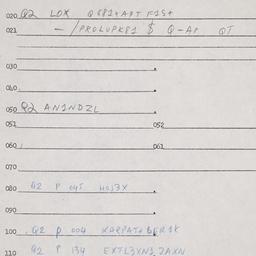 020 Q2 LOX Q881+APT F15+
021 — /PROLUPK81 $ Q-AP QT
030
040
050 Q2 ANINDZL
051 052
060 061
070
080 Q2 P 045 HOJ3X
090
100 Q2 P 004
110 Q2 P 134 EXTL3XN3 2AXN